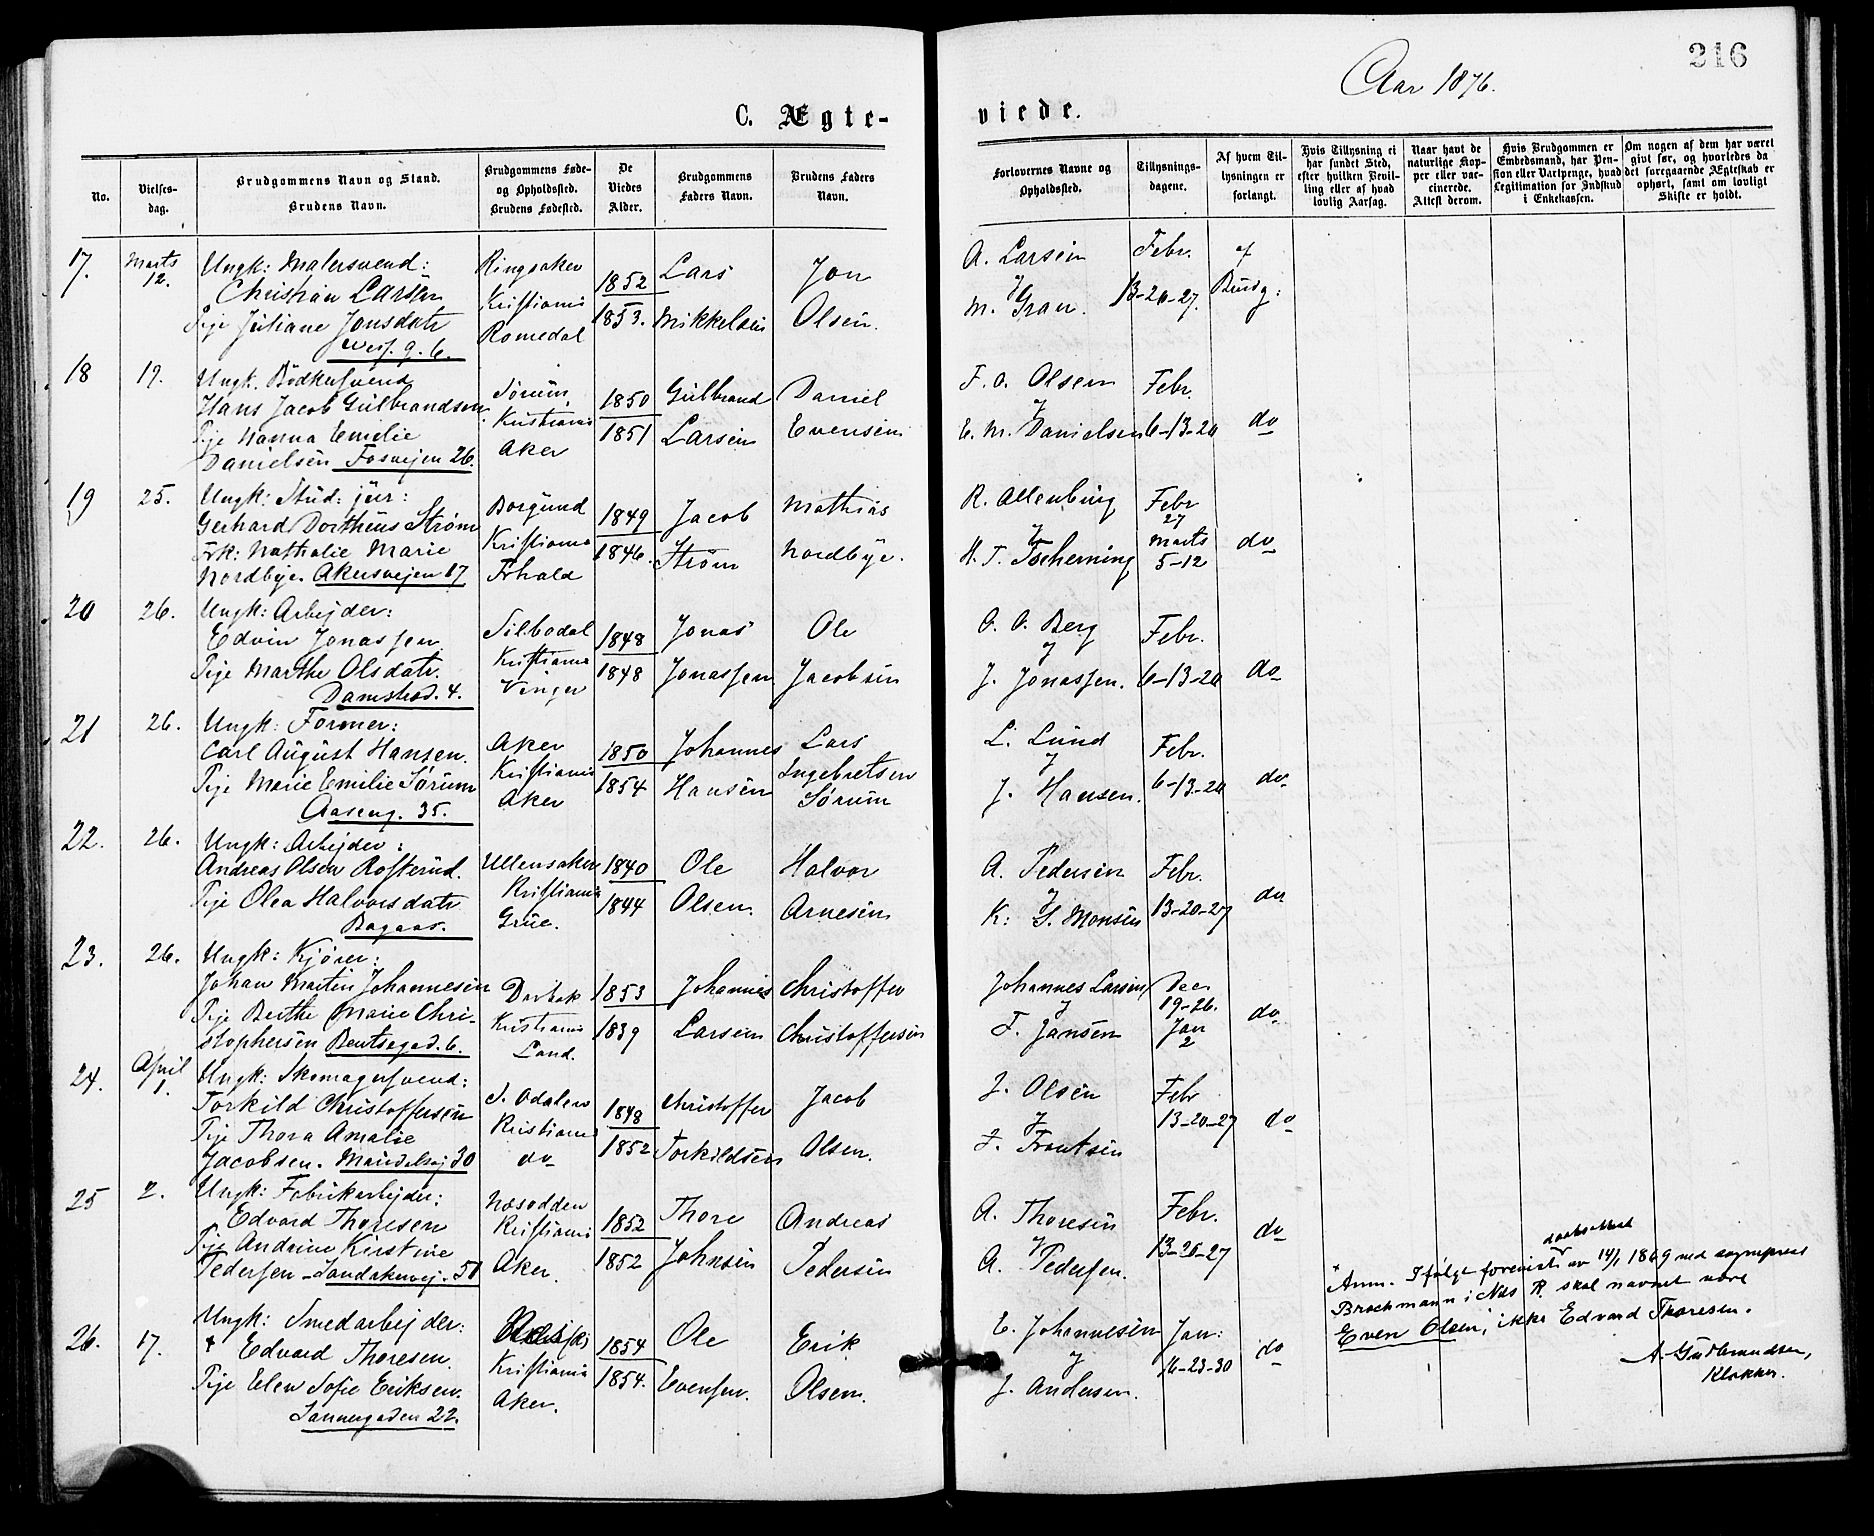 216
Aar 1876.
C. Ægte-
viede.
No.
Vielses-
dag.
Brudgommens Navn og Stand.
Brudens Navn.
Brudgommens Føde-
og Opholdssted.
Brudens Fødested.
De
Viedes
Alder.
Brudgommens
Faders Navn.
Brudens Faders
Navn.
Forlovernes Navne og
Opholdssted.
Tillysnings-
dagene.
Af hvem Til-
lysningen er
forlangt.
Hvis Tillysning ei
har fundet Sted,
efter hvilken Bevil-
ling eller af hvad
lovlig Aarsag.
Naar havt de
naturlige Kop-
per eller vac-
cinerede.
Attest derom.
Hvis Brudgommen er
Embedsmand, har Pen-
sion eller Vartpenge, hvad
Legitimation for Indskud
i Enkekassen.
Om nogen af dem har været
givt før, og hvorledes da
det foregaaende Ægteskab er
ophørt, samt om lovligt
Skifte er holdt.
17. Marts 12. Ungk: Malersvend:
Christian Larsen
Pige Juliane Jonsdatr
9. 6.
Ringsaker
Kristiania
Romedal
1852
1853.
Lars
Mikkelsen
Jon
Olsen.
A. Larsen
M. Gran.
Febr.
13-20-27.
af
Brudg:
18 19. Ungk. Bødkersvend
Hans Jacob Gulbrandsen
Pige Hanna Emelie
Danielsen Fosvejen 26.
Sørum,
Kristiania
Aker
1850
1851
Gulbrand
Larsen
Daniel
Evensen
F. O. Olsen
E. M. Danielsen
Febr.
6-13-20
do
19 25. Ungk: Stud: jur:
Gerhard Dortheus Strøm
Frk: Nathalie Marie
Nordbye. Akersvejen 17
Borgund
Kristiania
Frhald
1849
1846.
Jacob
Strøm
Mathias
Nordbye.
R. Allenbürg
H. T. Tscherning
Febr
27
Marts
5-12
do
20 26. Ungk: Arbejder:
Edvin Jonassen
Pige Marthe Olsdatr.
Damstrad. 4.
Silbodal
Kristiania
Vinger
1848
1848
Jonas
Jonassen
Ole
Jacobsen
O. O. Berg
J. Jonassen.
Febr.
6-13-20
do
21 26. Ungk: Formner:
Carl August Hansen.
Pige Marie Emilie Sørum
Aaseng. 35.
Aker
Kristiania
Aker
1850
1854
Johannes
Hansen
Lars
Ingebretsen
Sørum
L. Lund
J. Hansen.
Febr.
6-13-20
do
22. 26. Ungk: Arbejder:
Andreas Olsen Rosterud.
Pige Olea Halvorsdatr
Bagaas.
Ullensaker
Kristiania
Grue.
1840
1844
Ole
Olsen.
Halvor
Arnesen
A. Pedersen
K: S. Monsen
Febr.
13-20-27
do
23. 26. Ungk: Kjører:
Johan Martin Johannesen
Pige Berthe Marie Chri-
stophersen Bentsegad. 6.
Drøbak
Kristiania
Land.
1853
1839
Johannes
Larsen
Christoffer
Christoffersen
Johannes Larsen
F. Jansen
Dec
19-26.
Jan
2
do
24. April 1. Ungk: Skomagersvend:
Torkild Christoffersen
Pige Thora Amalie
Jacobsen. Maridalsvej 30
S. Odalen
Kristiania
do
1848
1852
Christoffer
Torkildsen
Jacob
Olsen.
J. Olsen
J. Frantsen
Febr
13-20-27
do
25 2. Ungk: Fabrikarbejder:
Edvard Thoresen
Pige Andrine Kirstine
Pedersen - Sandakervej. 50
Næsodden
Kristiania
Aker.
1852
1852
Thore
Johnsen
Andreas
Pedersen
A. Thoresen
A. Pedersen.
Febr.
13-20-27
do
26. 17. Ungk: Smedarbejder:
Edvard Thoresen.
Pige Elen Sofie Eriksen.
Sannergaden 22.
Kristiania
Aker.
1854
1854.
Ole
Evensen.
Erik
Olsen.
E. Johannesen
J. Andersen.
Jan:
16-23-30
do
Anm. Ifølge forevist daabsattest av 14/1 1869 ved sogneprest
Brochmann i Næs R. skal navnet være
Even Olsen, ikke Edvard Thoresen.
A. Gudbrandsen,
Klokker.